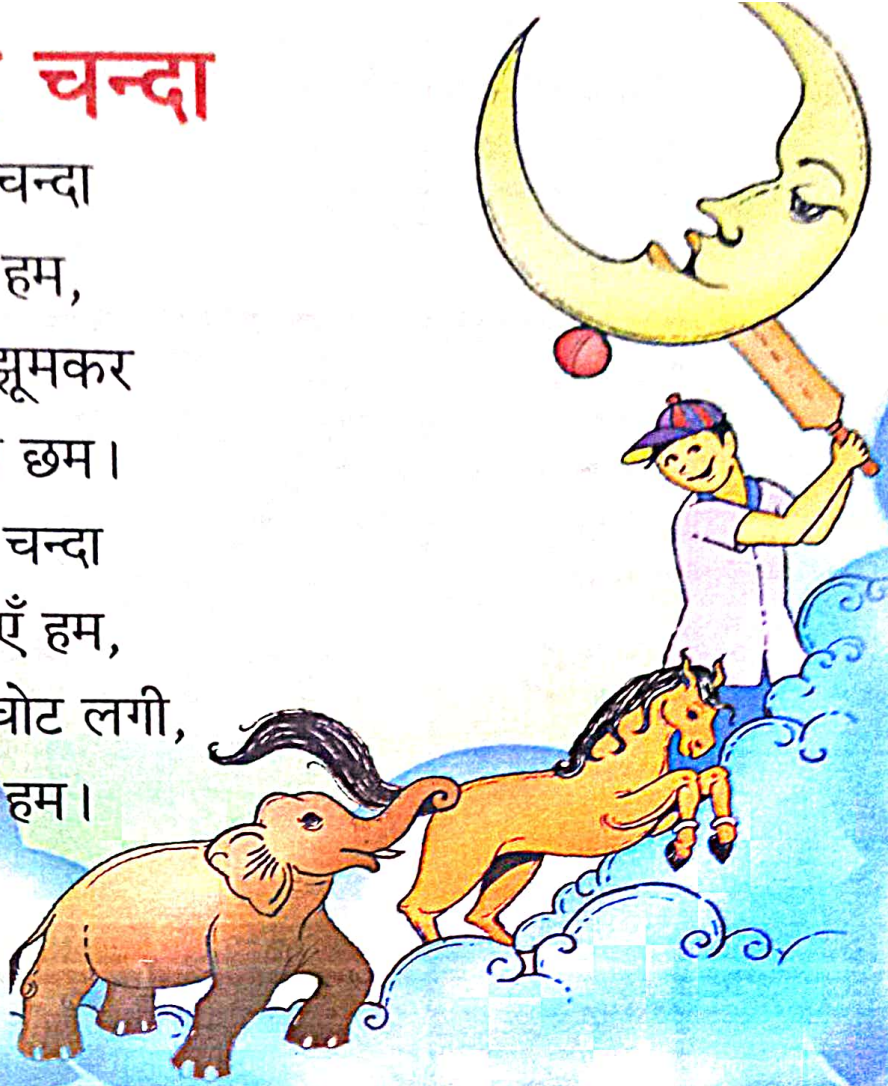 चन्दा
चन्दा
हम,
झूमकर
छम।
चन्दा
हम,
लगी,
हम।